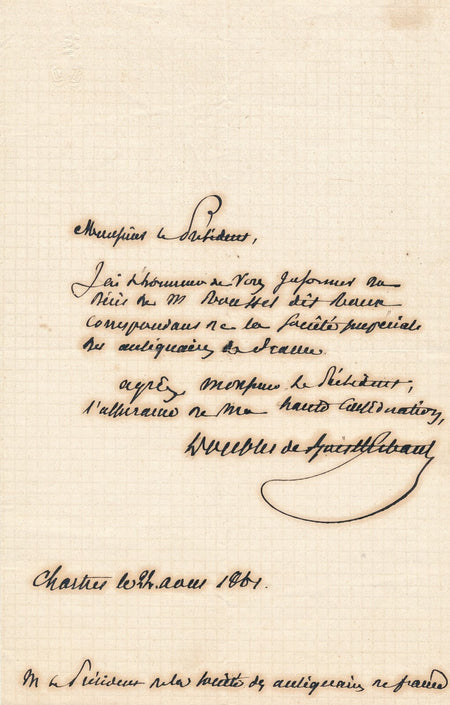 Monsieur le Président,
J'ai l'honneur de Vous Informer du
Décès de M dit
correspondant de la Société impériale
des antiquaires de france.
agréez, Monsieur le Président,
l'assurance de Ma haute Considération,
Doublet de Boisthibault
Chartres le aout 1861.
M le Président de la Société des antiquaires de france